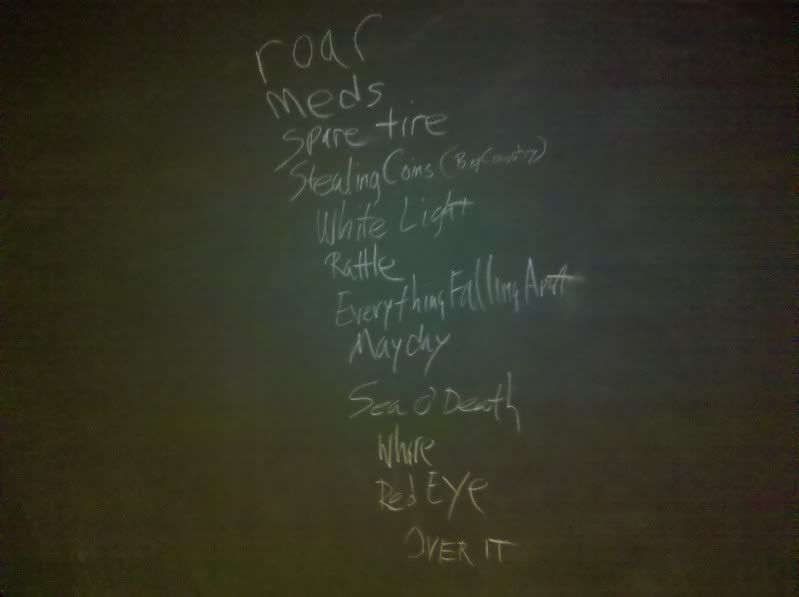 roar
meds
spare tire
Stealing Coins (Big Country)
White Light
Rattle
Everything Falling Apart
Mayday
Sea o' Death
Red Eye
OVER IT